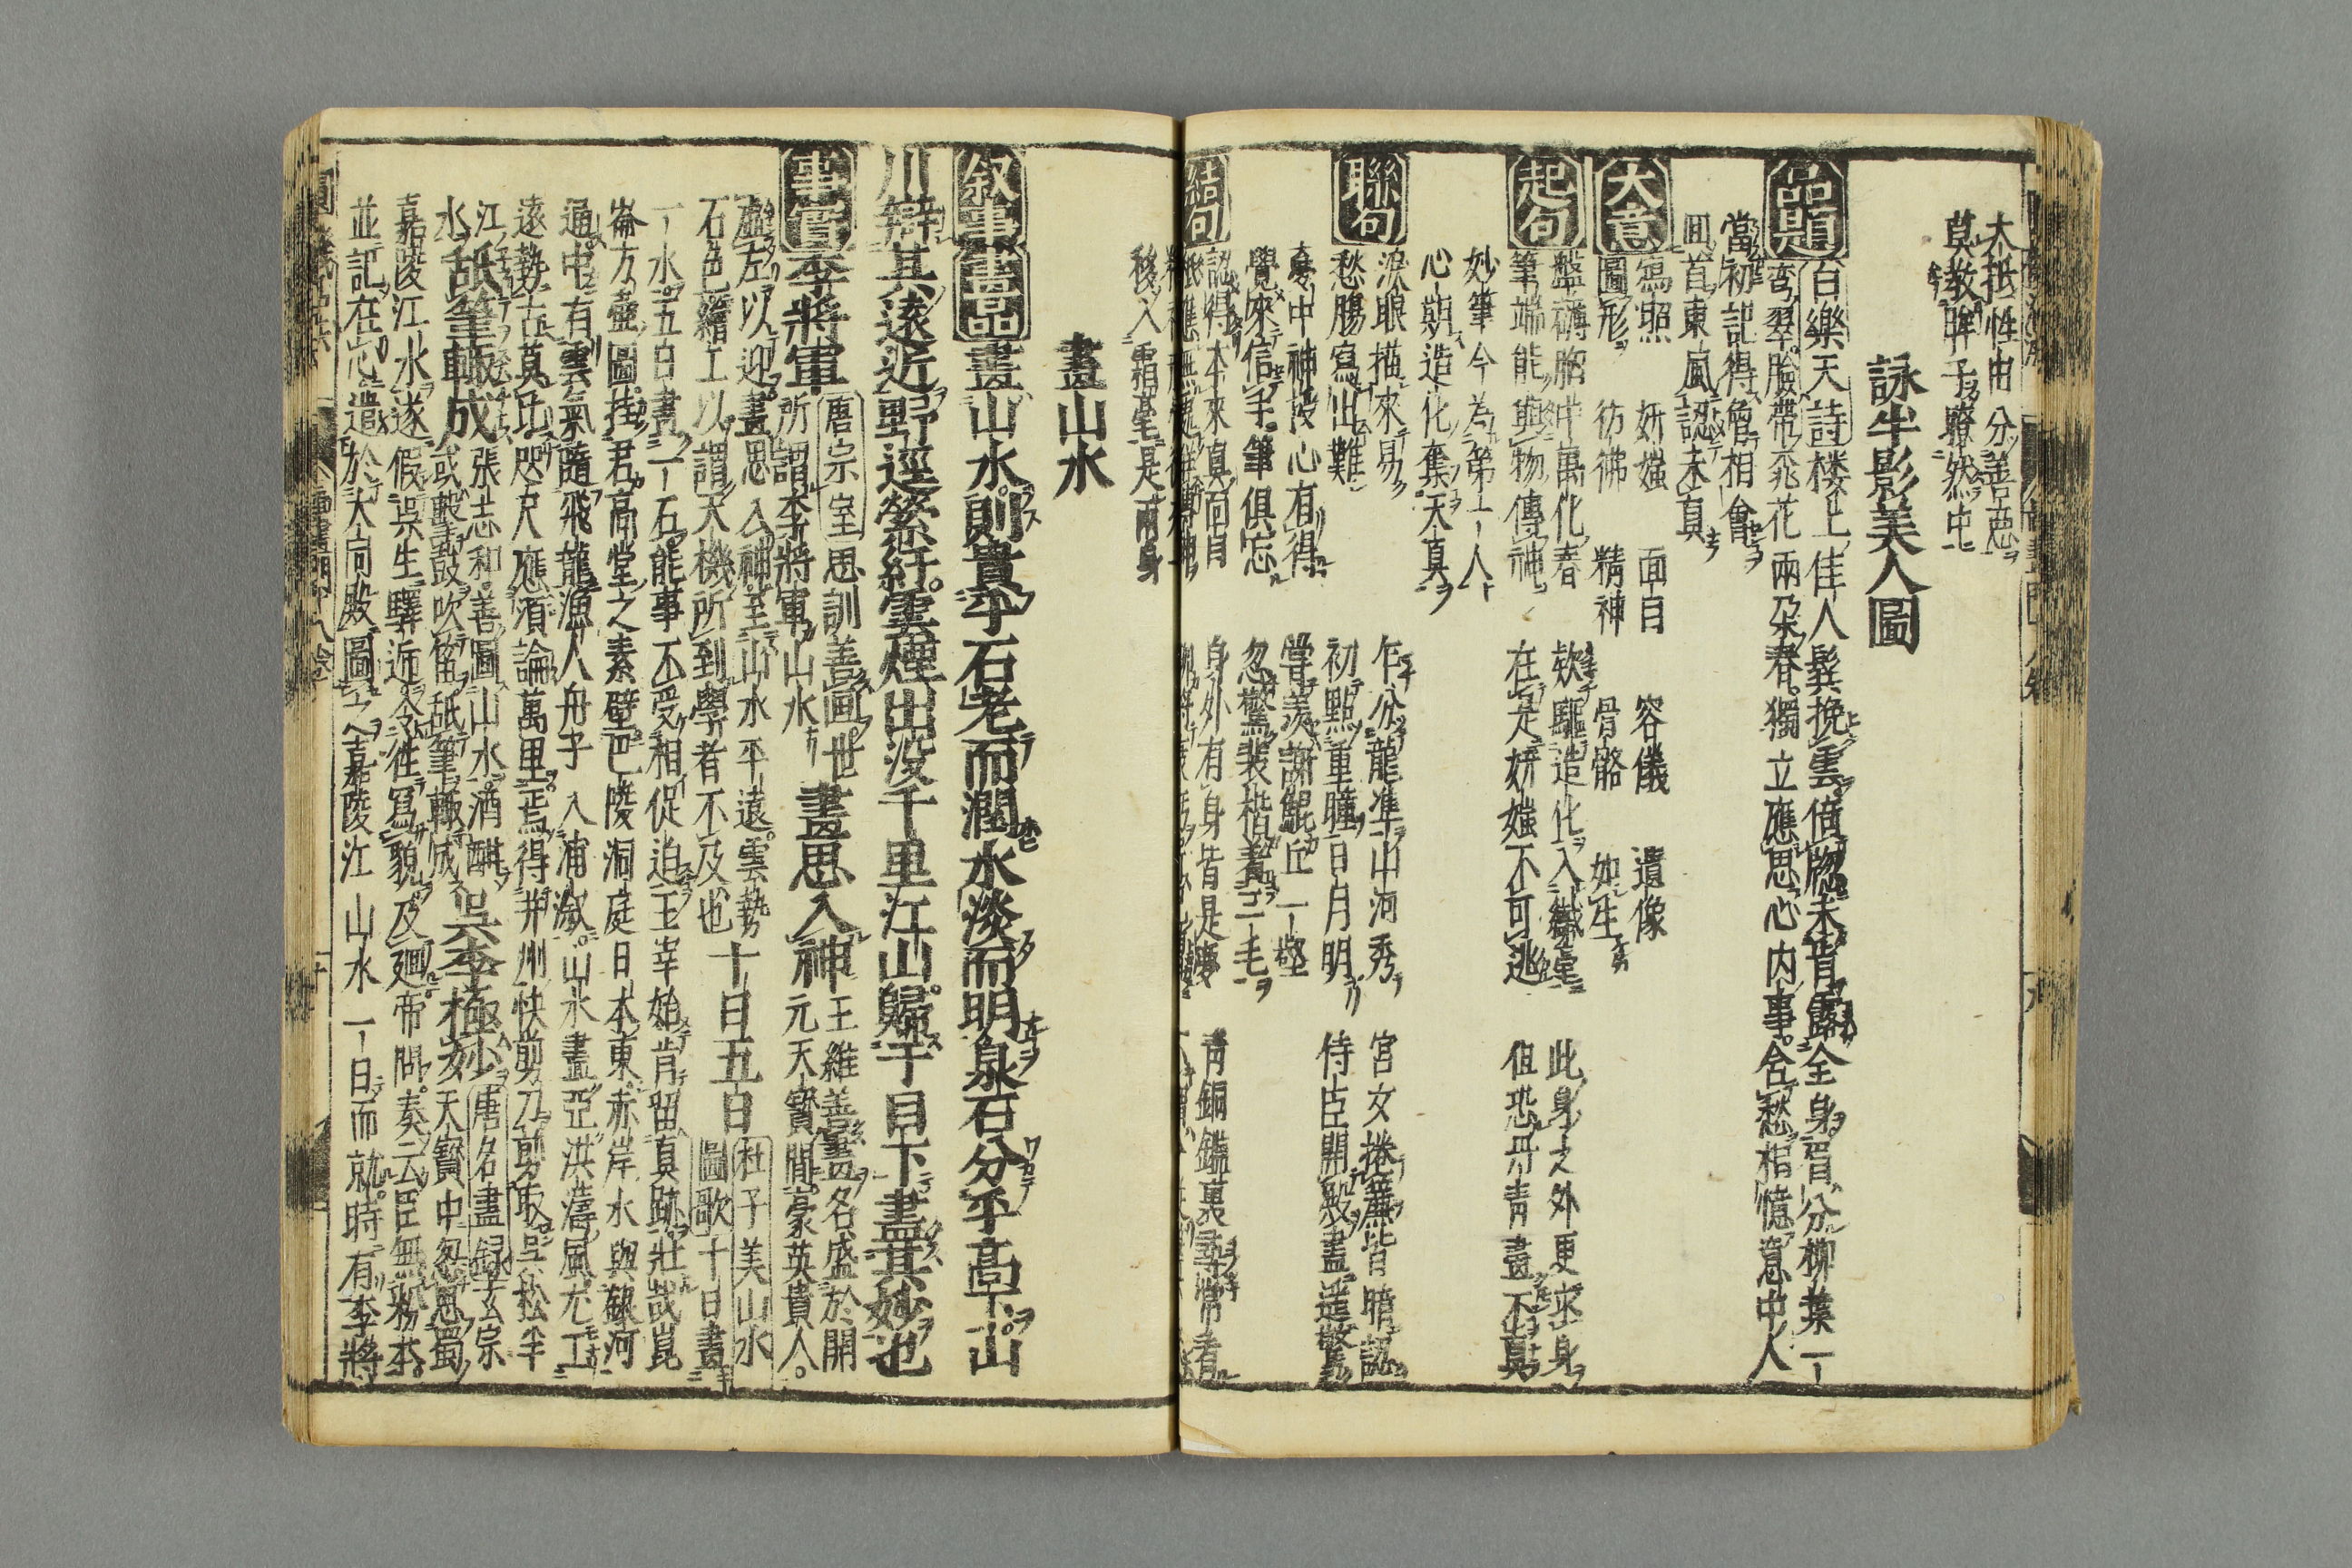 大抵性由分善惡
莫教眸子瞭然中
詠半影美人圖
品題 白樂天詩 楼上佳人鬂挽雲倚牕未肯露全身眉分柳葉一
弯翠臉帶桃花兩朶春獨立應思心内事含愁相憶意中人
當初記得曾相會
回首東風認未真
大意 寫照 妍媸 面目 容儀 遺像
圖形 彷彿 精神 骨骼 如生
起句 盤礴胸中萬化春 欻驅造化入纎毫 此身之外更求身
筆端能與物傳神 在定妍媸不可逃 但恐丹青畫不真
妙筆今為第一人
心期造化奪天真
聯句 淚眼描來易 乍分龍準山河秀 宮女捲簾皆暗認
愁腸寫出難 初點重瞳日月明 侍臣開殿盡遥驚
夢中神授心有得 嘗羨謝鯤丘一壑
覺來信手筆俱忘 忽驚裴楷着二毛
結句 認得本來真面目 身外有身皆是夢 青銅鑑裏尋常看
移入霜毫是兩身
畫山水
叙事 畫品 畫山水則貴乎石老而潤水淡而明泉石分乎高下山
川辯其遠近野逕縈紆雲煙出没千里江山歸于目下盡其妙也
事實 李將軍 唐宗室思訓善画世所謂李將軍山水 畫思入神 王維善畫名盛於開元天寳間豪英貴人
虚左以迎畫思入神至山水平遠雲勢石色繪工以謂天機所到學者不及也 十日五日 杜子美山水圖歌十日畫
一水五日畫一石能事不受相促迫王宰始肯留真跡壯哉崑
崙方壺圖挂君高堂之素壁巴陵洞庭日本東赤岸水與銀河
通中有雲氣隨飛龍漁人舟子入浦溆山水盡亞洪濤風尤工
遠勢古莫比咫尺應須論萬里焉得并州快剪刀剪取呉松半
江水 舐筆輙成 張志和善圖山水酒酣或擊鼓吹笛舐筆輙成 呉李極妙 唐名畫録玄宗天寳中忽思蜀
嘉陵江水遂假呉生驛逓令徃寫貌及廻帝問奏云臣無粉本
並記在心遣於大同殿圖之嘉陵江山水一日而就時有李將